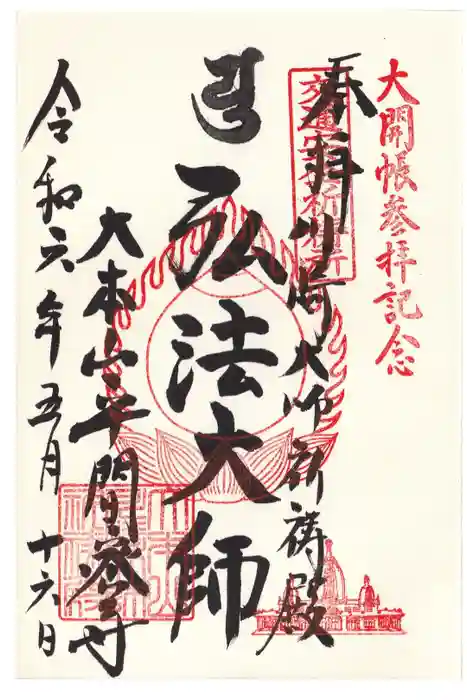 大開帳参拝記念
奉拝
交通安全祈祷所
川崎大師祈祷殿
弘法大師
大本山平間寺
令和六年五月十六日